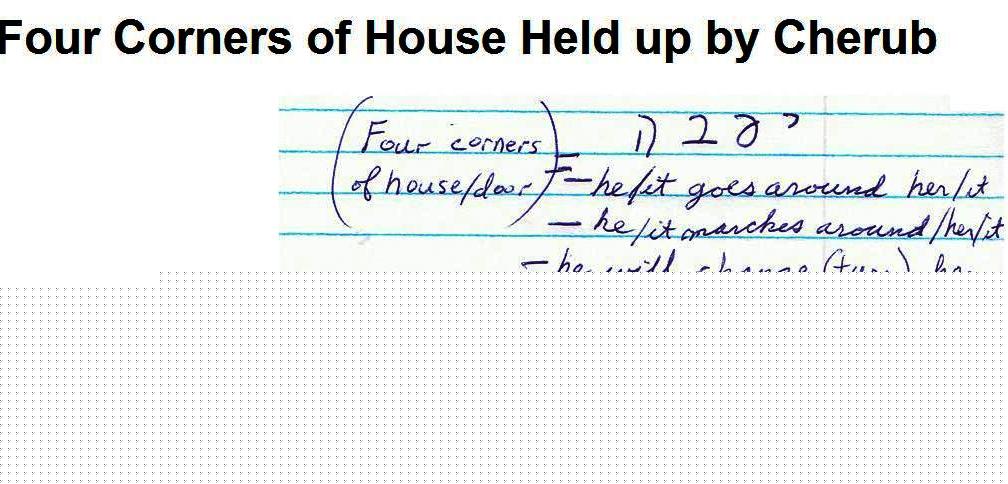 Four Corners of House Held up by Cherub
(Four corners = יסבה
of house/door) – he/it goes around her/it
– he/it marches around/her/it
– he will change (turn)